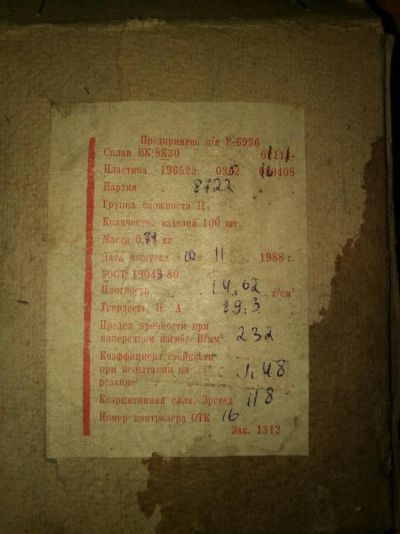 Предприятие п/я Р-6936
Сплав ВК 8К30
Пластина 196525 0302 040408
Партия 8722
Группа сложности II
Количество изделий 100 шт.
Масса 0,71 кг
Дата выпуска 10 11 1988 г.
ГОСТ 19043-80
Плотность 14,62 г/см³
Твердость, А 89.3
Предел прочности при
поперечном изгибе, Н/мм² 232
Коэффициент стойкости
при испытании на 1,48
резание
Коэрцитивная сила, Эрстед 118
Номер контролера ОТК 16
Зак. 1312